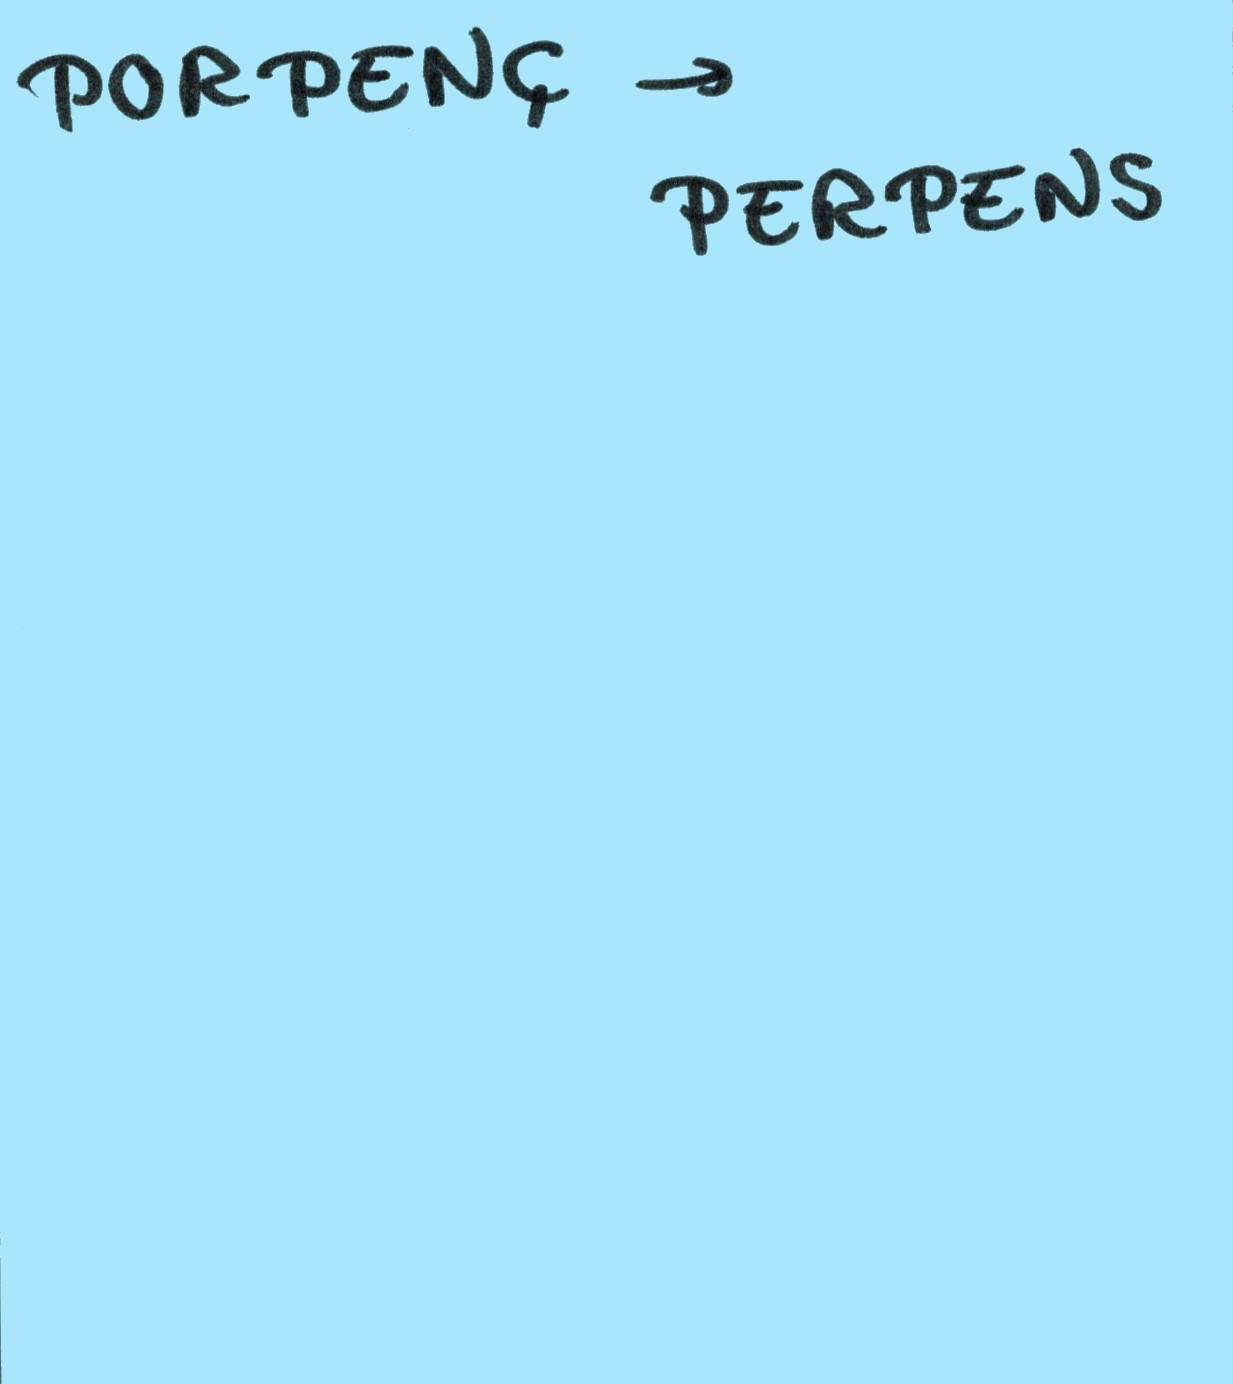 PORPENÇ →
PERPENS